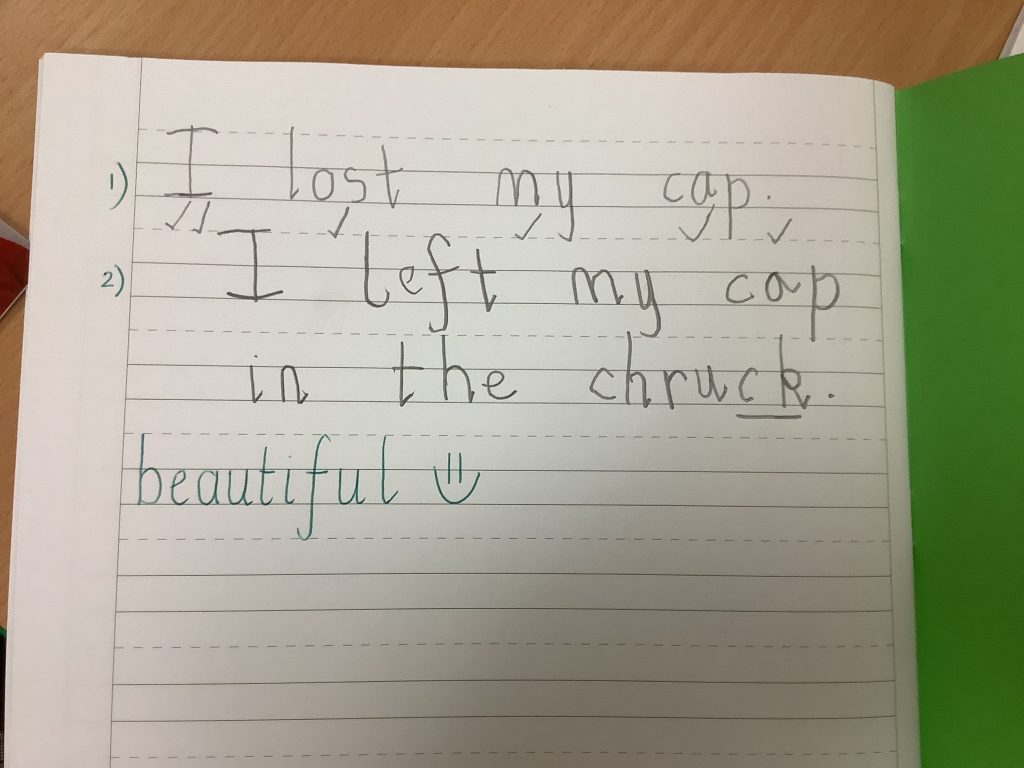 1) I lost my cap.
2) I left my cap
in the chruck.
beautiful